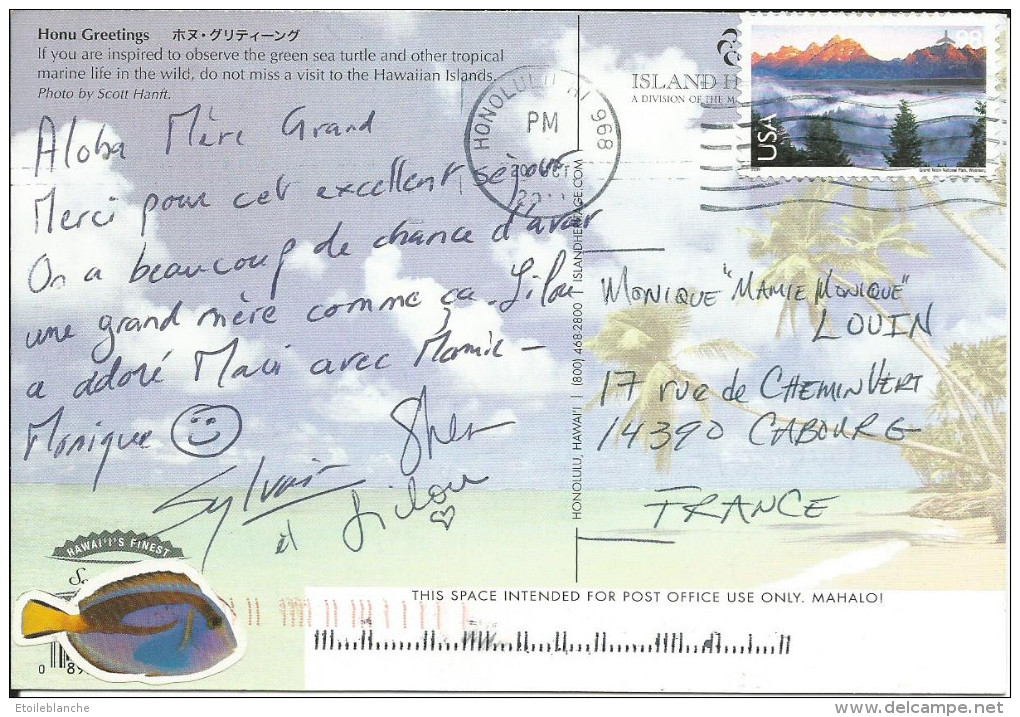 Honu Greetings ホヌ・グリティーング
If you are inspired to observe the green sea turtle and other tropical
marine life in the wild, do not miss a visit to the Hawaiian Islands.
Photo by Scott Hanft.
Aloha Mère Grand
Merci pour cet excellent séjour
On a beaucoup de chance d'avoir
une grand mère comme ça. Lilou
a adoré Maui avec Mamie
Monique
Sylvain
et Lilou
HONOLULU HI 968
PM
ISLAND H
A DIVISION OF THE M
98
USA
Grand Teton National Park, Wyoming
HONOLULU, HAWAI'I | (800) 468-2800 | ISLANDHERITAGE.COM
MONIQUE "MAMIE MONIQUE"
LOUIN
17 rue de CHEMIN VERT
14390 CABOURG
FRANCE
HAWAI'I'S FINEST
0 89
THIS SPACE INTENDED FOR POST OFFICE USE ONLY. MAHALO!
Etoileblanche